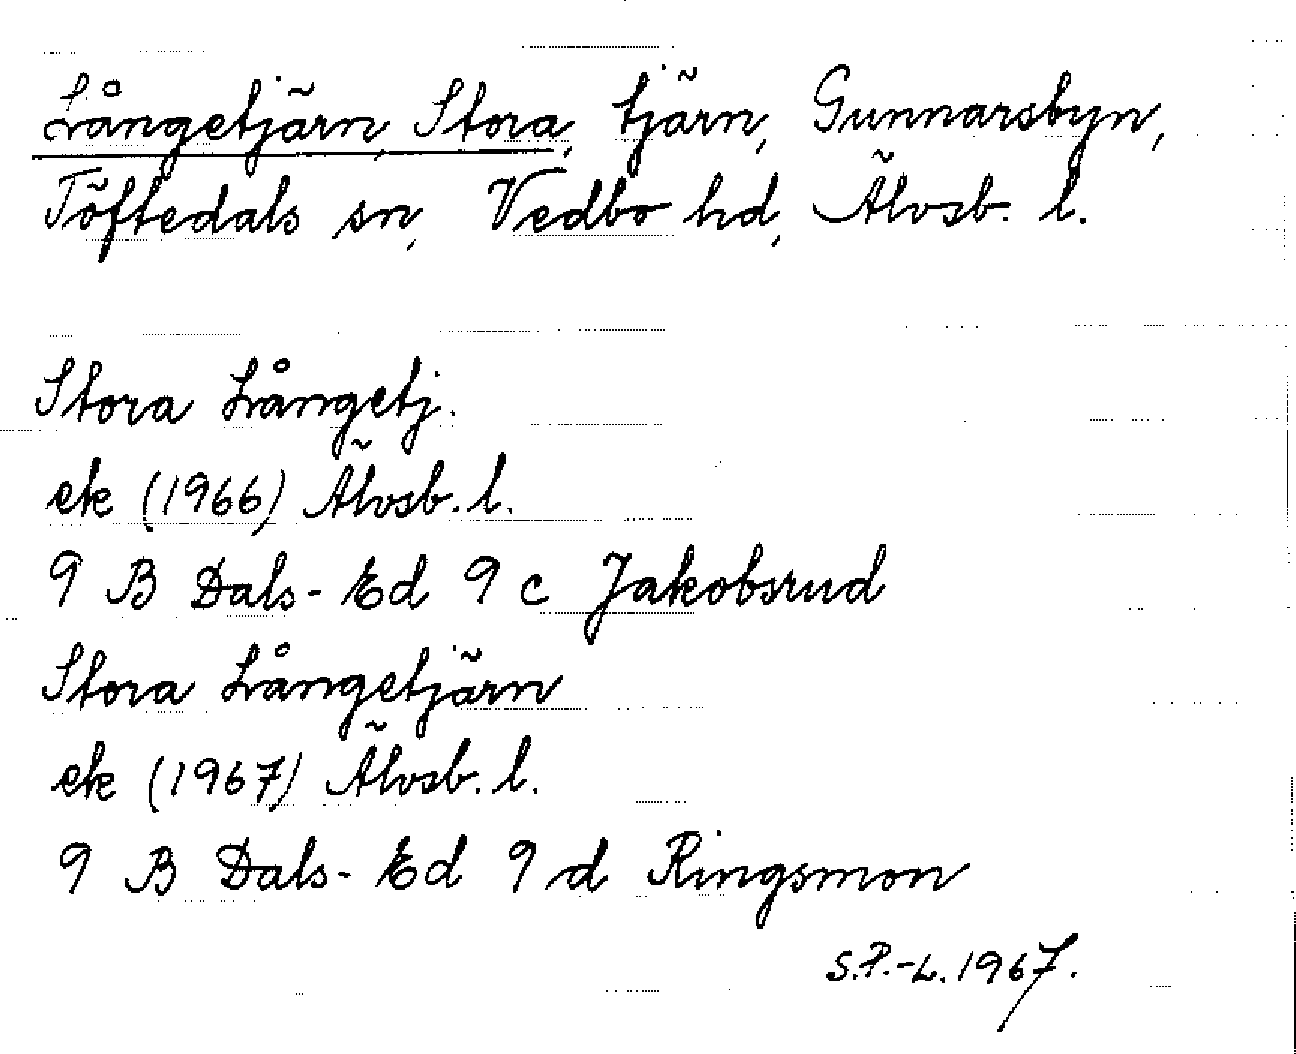 Långetjärn, Stora, tjärn, Gunnarsbyn,
Töftedals sn, Vedbo hd, Älvsb. l.
Stora Långetj.
ek (1966) Älvsb. l.
9 B Dals-Ed 9 c Jakobsrud
Stora Långetjärn
ek (1967) Älvsb. l.
9 B Dals-Ed 9 d Ringsmon
S.P.-L. 1967.